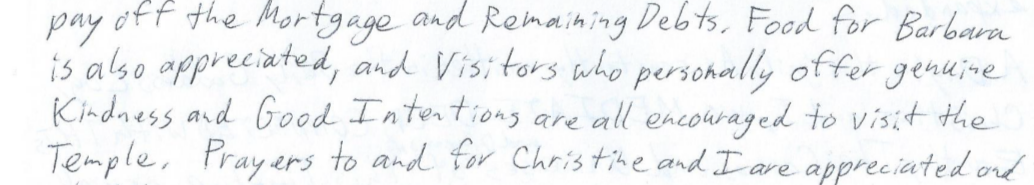 pay off the Mortgage and Remaining Debts. Food for Barbara
is also appreciated, and Visitors who personally offer genuine
Kindness and Good Intentions are all encouraged to visit the
Temple. Prayers to and for Christine and I are appreciated and